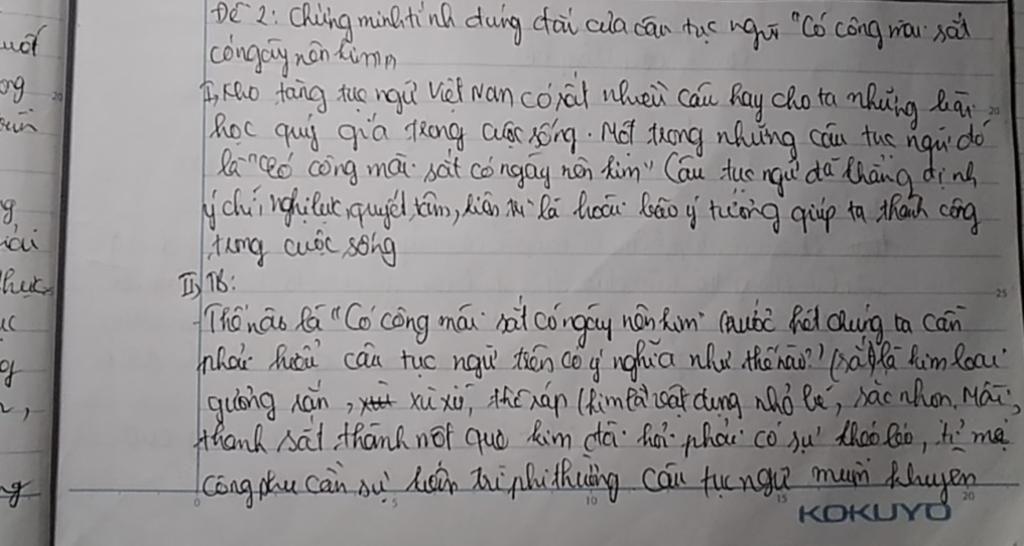 Đề 2: Chứng minh tính đúng đắn của câu tục ngữ "Có công mài sắt
có ngày nên kim
I, Kho tàng tục ngữ Việt Nam có rất nhiều câu hay cho ta những bài
học quý giá trong cuộc sống. Một trong những câu tục ngữ đó
là "Có công mài sắt có ngày nên kim" Câu tục ngữ đã khẳng định
ý chí, nghị lực, quyết tâm, kiên trì là hoài bão ý tưởng giúp ta thành công
trong cuộc sống
II, TB:
Thế nào là "Có công mài sắt có ngày nên kim" trước hết chúng ta cần
phải hiểu câu tục ngữ trên có ý nghĩa như thế nào? (sắt) là kim loại
rắn, xù xì, thô ráp (kim là vật dụng nhỏ bé, sắc nhọn. Mài
thanh sắt thành một que kim đòi hỏi phải có sự khéo léo, tỉ mỉ
công phu cần sự kiên trì phi thường Câu tục ngữ muốn khuyên
0 5 10 15 20
KOKUYO
20
25
uốt
ong
g,
ng